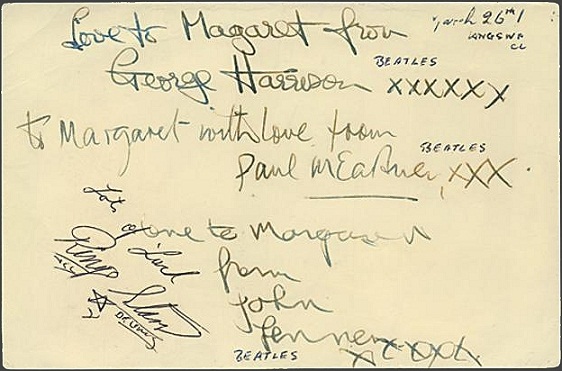 Love to Magaret from
George Harrison xxxxxx
BEATLES
March 26th
to Margaret with love from
Paul McCartney xxx
BEATLES
Lots of Luck
Ringo Starr
love to Margaret
from
John
Lennon
BEATLES